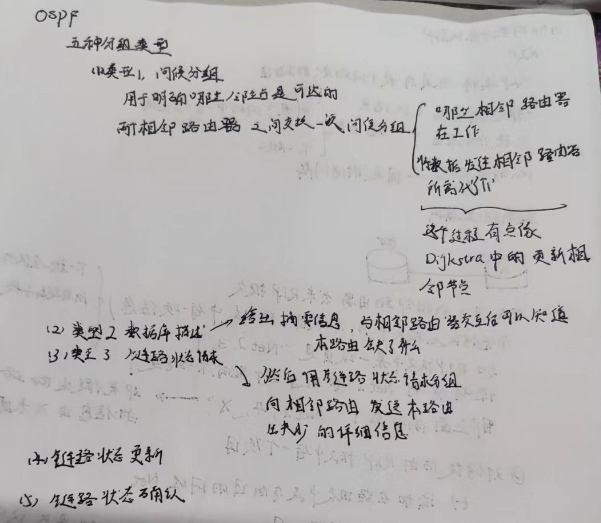 OSPF
五种分组类型
(1)类型1, 问候分组
用于明确哪些邻站是可达的
两相邻路由器之间交换一次问候分组
哪些相邻路由器
在工作
将数据发往相邻路由器
所需代价
这个过程有点像
Dijkstra中的更新相
邻节点
(2) 类型2 数据库描述 → 给出摘要信息, 与相邻路由器交互后可以知道
本路由缺了什么
(3) 类型3 链路状态请求
然后用链路状态请求分组
向相邻路由发送本路由
缺少的详细信息
(4) 链路状态更新
(5) 链路状态确认